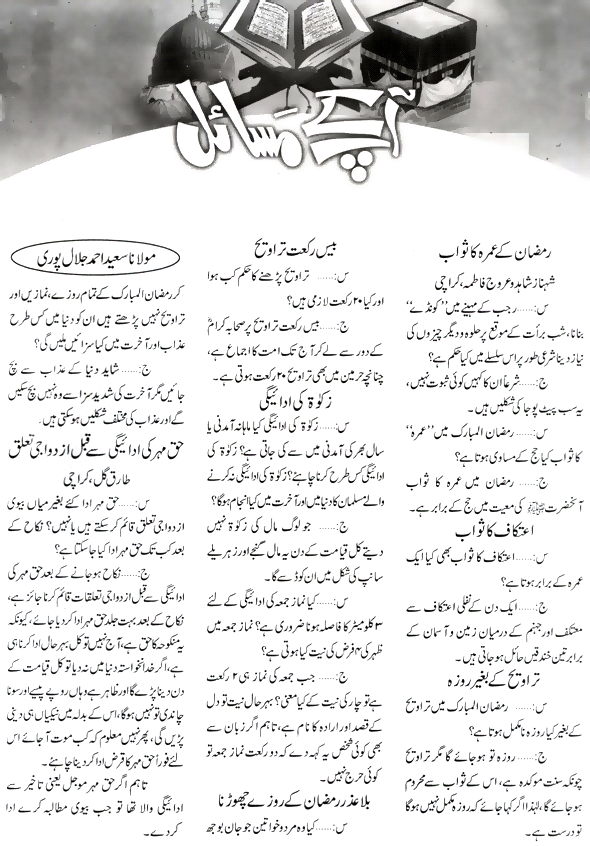 آپ کے مسائل
مولانا سعید احمد جلال پوری
رمضان کے عمرہ کا ثواب
شہناز شاہد و عروج فاطمہ، کراچی
س:...... رجب کے مہینے میں ”کونڈے“
بنانا، شب برأت کے موقع پر حلوہ و دیگر چیزوں کی
نیاز دینا شرعی طور پر اس سلسلے میں کیا حکم ہے؟
ج:...... شرعاً ان کا کہیں کوئی ثبوت نہیں،
یہ سب پیٹ پوجا کی شکلیں ہیں۔
س:...... رمضان المبارک میں ”عمرہ“
کا ثواب کیا حج کے مساوی ہوتا ہے؟
ج:...... رمضان میں عمرہ کا ثواب
آنحضرت ﷺ کی معیت میں حج کے برابر ہے۔
اعتکاف کا ثواب
س:...... اعتکاف کا ثواب بھی کیا ایک
عمرہ کے برابر ہوتا ہے؟
ج:...... ایک دن کے نفلی اعتکاف سے
معتکف اور جہنم کے درمیان زمین و آسمان کے
برابر تین خندقیں حائل ہو جاتی ہیں۔
تراویح کے بغیر روزہ
س:...... رمضان المبارک میں تراویح
کے بغیر کیا روزہ نامکمل ہوتا ہے؟
ج:...... روزہ تو ہو جائے گا مگر تراویح
چونکہ سنت موکدہ ہے، اس کے ثواب سے محروم
ہو جائے گا، لہٰذا اگر کہا جائے کہ روزہ مکمل نہیں ہوگا
تو درست ہے۔
بیس رکعت تراویح
س:...... تراویح پڑھنے کا حکم کب ہوا
اور کیا ۲۰ رکعت لازمی ہیں؟
ج:...... بیس رکعت تراویح پر صحابہ کرامؓ
کے دور سے لے کر آج تک امت کا اجماع ہے،
چنانچہ حرمین میں بھی تراویح ۲۰ رکعت ہوتی ہے۔
زکوٰۃ کی ادائیگی
س:...... زکوٰۃ کی ادائیگی کیا ماہانہ آمدنی یا
سال بھر کی آمدنی میں سے کی جاتی ہے؟ زکوٰۃ کی
ادائیگی کس طرح کرنا چاہئے؟ زکوٰۃ کی ادائیگی نہ کرنے
والے مسلمان کا دنیا میں اور آخرت میں کیا انجام ہوگا؟
ج:...... جو لوگ مال کی زکوٰۃ نہیں
دیتے کل قیامت کے دن یہ مال گنجے اور زہریلے
سانپ کی شکل میں ان کو ڈسے گا۔
س:...... کیا نماز جمعہ کی ادائیگی کے لئے
۳ کلومیٹر کا فاصلہ ہونا ضروری ہے؟ نماز جمعہ میں
ظہر کی ۴ فرض کی نیت کیا ہوتی ہے؟
ج:...... جب جمعہ کی نماز ہی ۲ رکعت
ہے تو چار کی نیت کے کیا معنی؟ بہرحال نیت تو دل
کے قصد اور ارادہ کا نام ہے، تاہم اگر زبان سے
بھی کوئی شخص یہ کہہ دے کہ دو رکعت نماز جمعہ تو
کوئی حرج نہیں۔
بلاعذر رمضان کے روزے چھوڑنا
س:...... کیا وہ مرد و خواتین جو جان بوجھ
کر رمضان المبارک کے تمام روزے، نمازیں اور
تراویح نہیں پڑھتے ہیں ان کو دنیا میں کس طرح
عذاب اور آخرت میں کیا سزائیں ملیں گی؟
ج:...... شاید دنیا کے عذاب سے بچ
جائیں مگر آخرت کی شدید سزا سے وہ نہیں بچ سکیں
گے اور عذاب کی مختلف شکلیں ہو سکتی ہیں۔
حق مہر کی ادائیگی سے قبل ازدواجی تعلق
طارق گل، کراچی
س:...... حق مہر ادا کئے بغیر میاں بیوی
ازدواجی تعلق قائم کر سکتے ہیں یا نہیں؟ نکاح کے
بعد کب تک حق مہر ادا کیا جا سکتا ہے؟
ج:...... نکاح ہو جانے کے بعد حق مہر کی
ادائیگی سے قبل ازدواجی تعلقات قائم کرنا جائز ہے،
نکاح کے بعد بہت جلد حق مہر ادا کر دیا جائے، کیونکہ
یہ منکوحہ کا حق ہے، آج نہیں تو کل بہرحال ادا کرنا ہی
ہے، اگر خدانخواستہ دنیا میں نہ دیا تو کل قیامت کے
دن دینا پڑے گا اور ظاہر ہے وہاں روپے پیسے اور سونا
چاندی تو نہیں ہوگا، اس کے بدلہ میں نیکیاں ہی دینی
پڑیں گی، پھر نہیں معلوم کہ کب موت آ جائے اس
لئے فوراً حق مہر کا قرض ادا کر دینا چاہئے۔
تاہم اگر حق مہر موجل یعنی تاخیر سے
ادائیگی والا تھا تو جب بیوی مطالبہ کرے ادا
کر دے۔